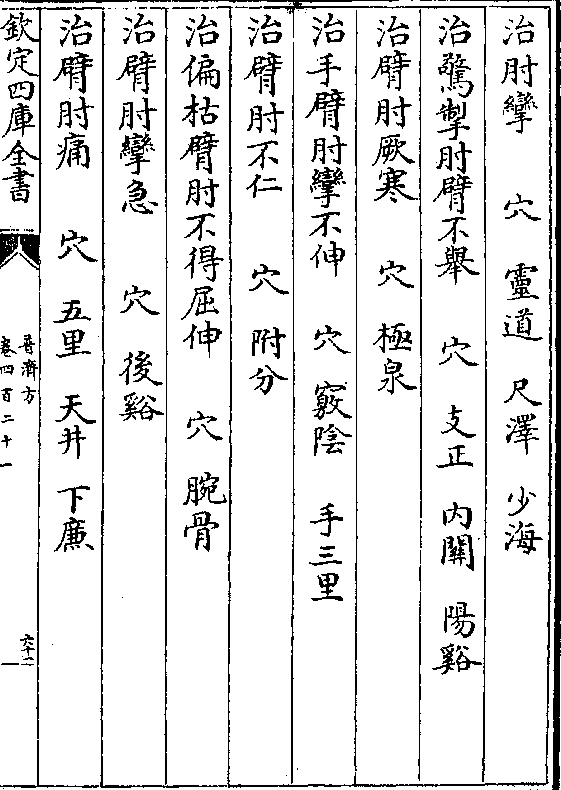 治肘攣　穴　靈道　尺澤　少海
治驚掣肘臂不舉　穴　支正　内關　陽谿
治臂肘厥寒　穴　極泉
治手臂肘攣不伸　穴　竅陰　手三里
治臂肘不仁　穴　附分
治偏枯臂肘不得屈伸　穴　腕骨
治臂肘攣急　穴　後谿
治臂肘痛　穴　五里　天井　下廉
欽定四庫全書
普濟方
卷四百二十一
六十二